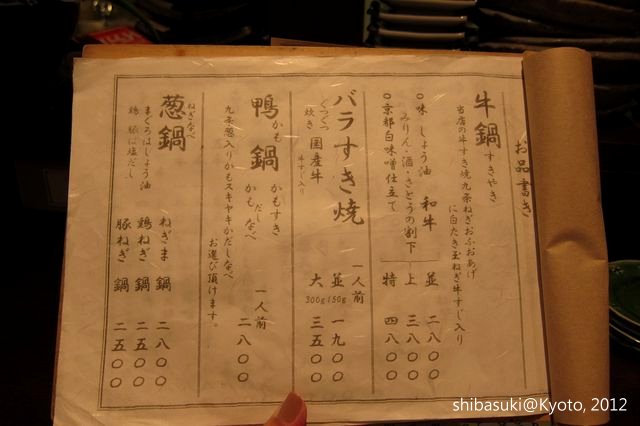 お品書き
牛鍋 すきやき
当店の牛すき焼九条ねぎおふおあげ
に白たき玉ねぎ牛すじ入り
和牛
並 二八〇〇
上 三八〇〇
特 四八〇〇
○味 しょう油
みりん・酒・さとうの割下
○京都白味噌仕立て
バラすき焼
ぐつぐつ
炊き 国産牛
牛すじ入り
一人前
並 150g 一九〇〇
大 300g 三五〇〇
鴨鍋
かも かもすき
だし
かも なべ
九条葱入りかもスキヤキかだしなべ
お選び頂けます。
一人前
二八〇〇
葱鍋
ねぎなべ
まぐろはしょう油
鶏 豚は塩だし
ねぎま 鍋 二八〇〇
鶏ねぎ 鍋 二五〇〇
豚ねぎ 鍋 二五〇〇
shibasuki@Kyoto, 2012